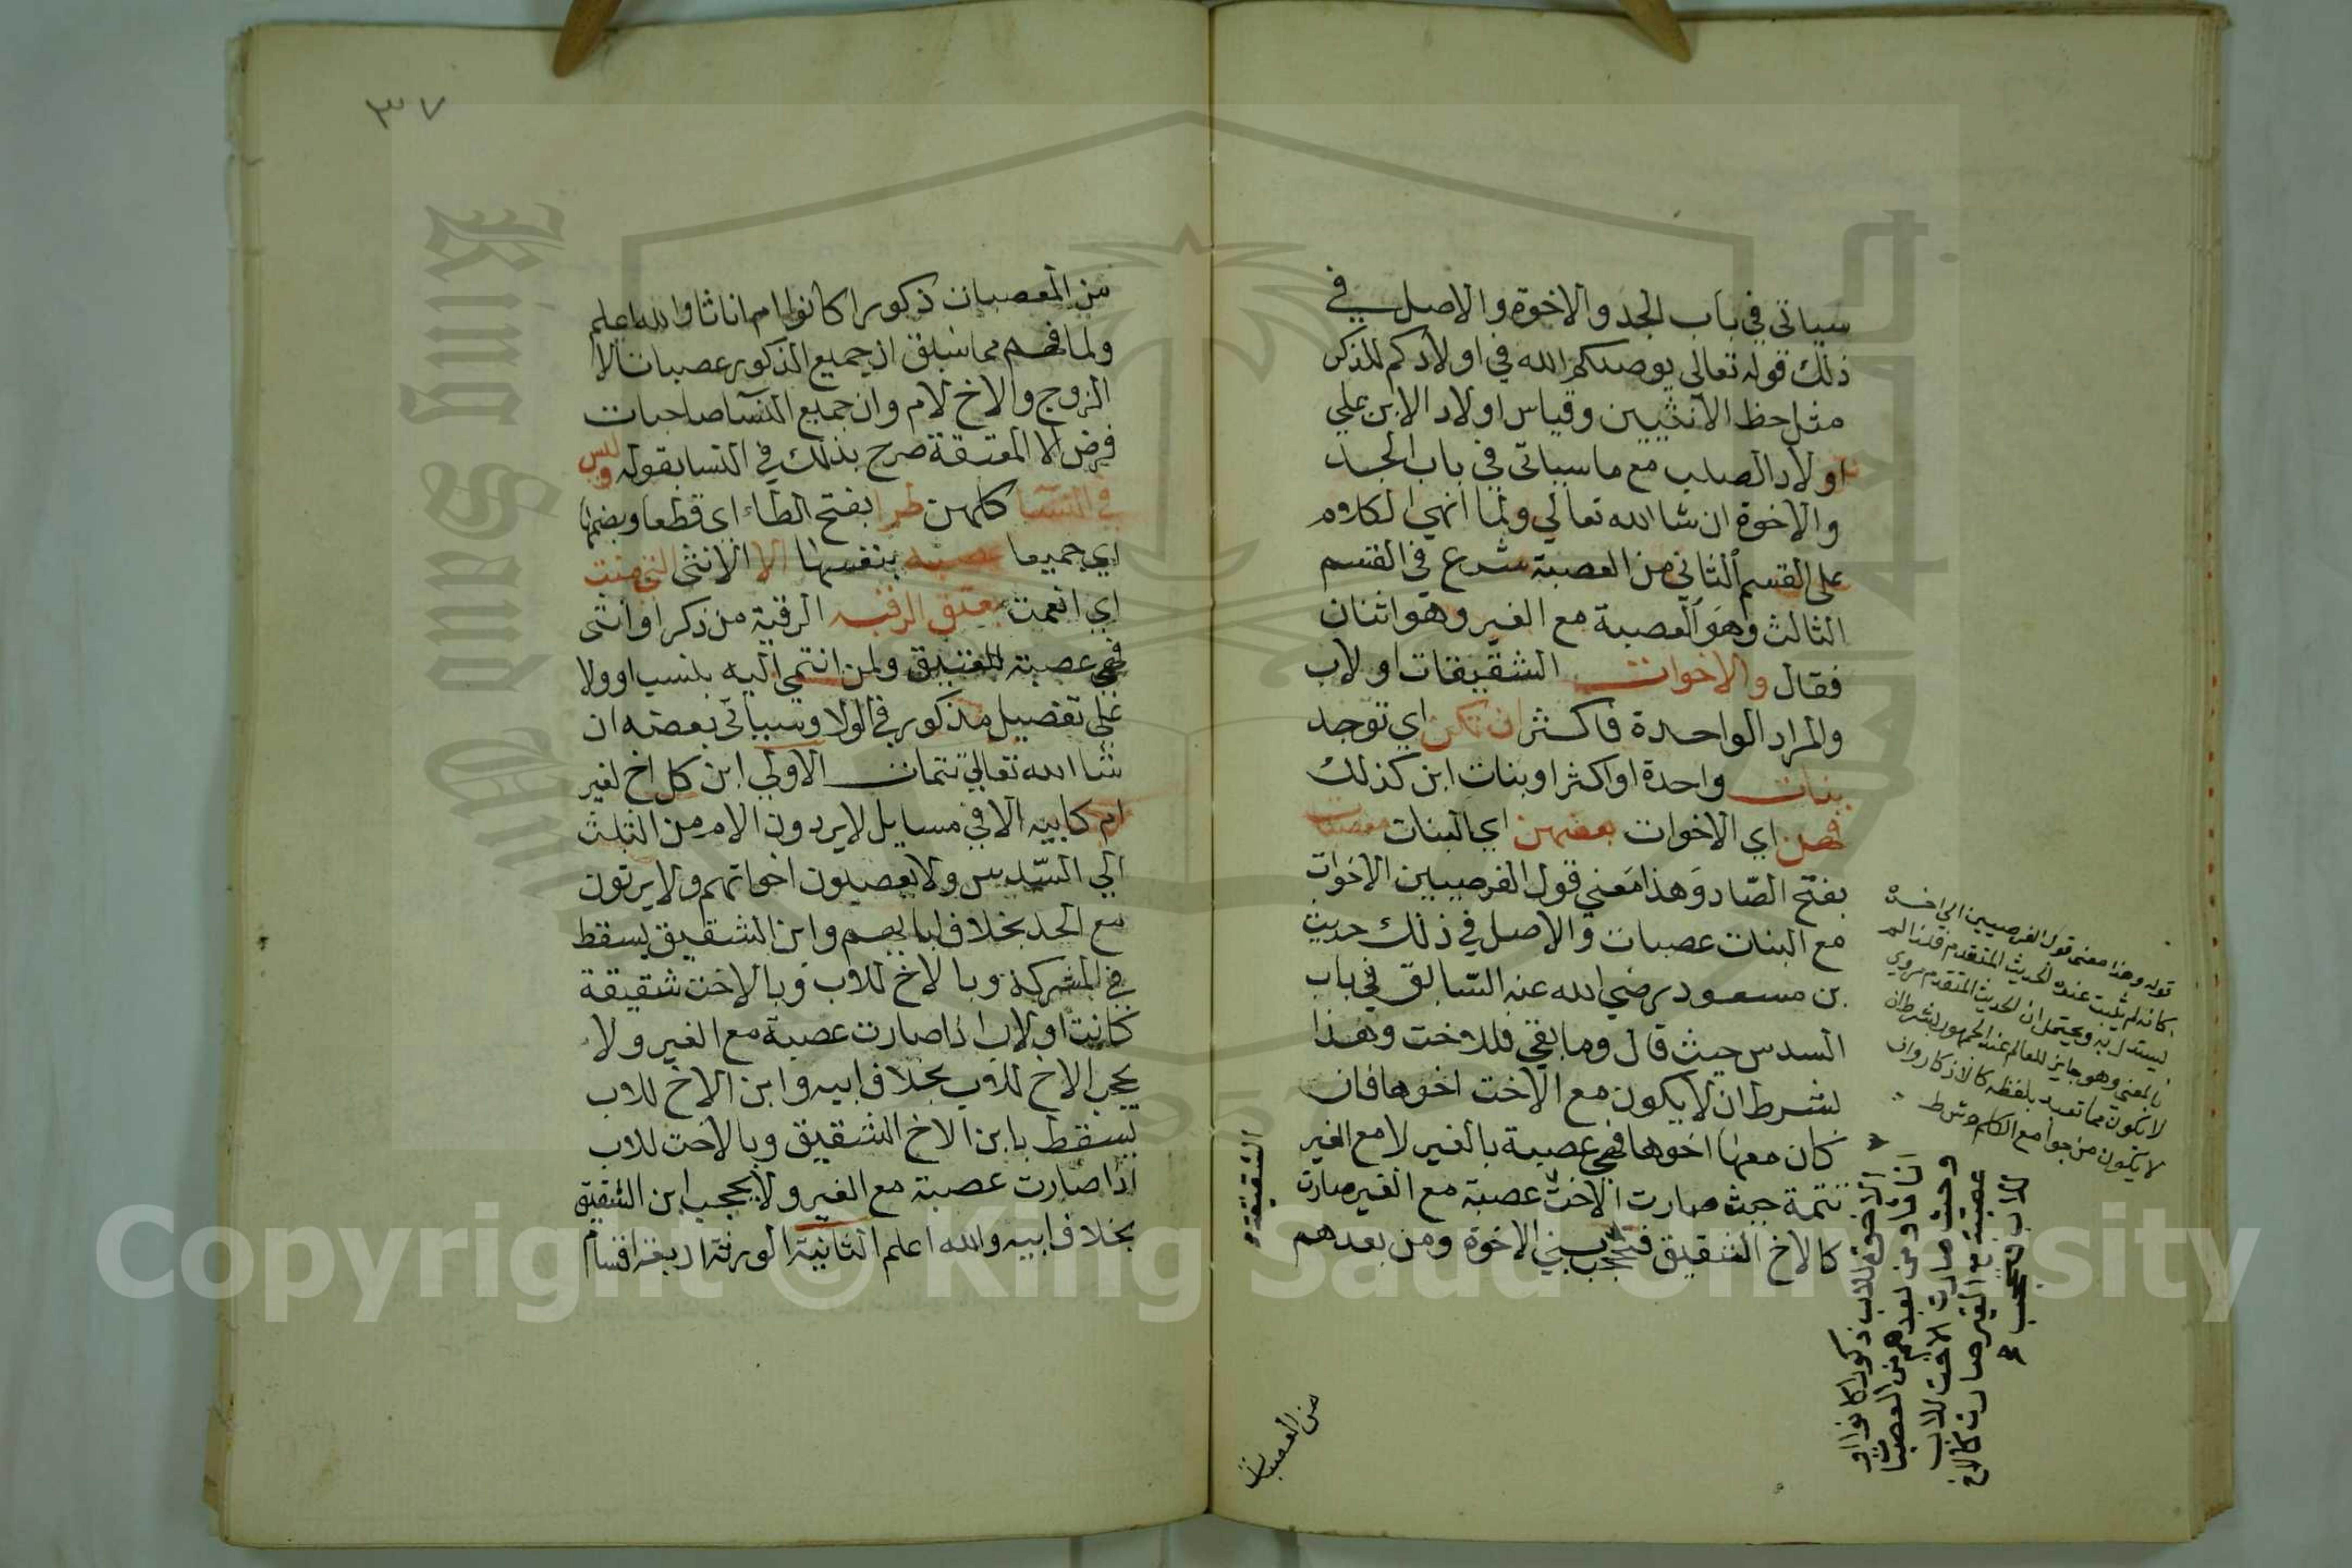 سياتي في باب الجد والاخوة والاصل في
ذلك قوله تعالى يوصيكم الله في اولادكم للذكر
مثل حظ الانثيين وقياس اولاد الابن على
اولاد الصلب مع ما سياتي في باب الجد
والاخوة ان شا الله تعالى ولما انهى الكلام
على القسم الثاني من العصبة شرع في القسم
الثالث وهو العصبة مع الغير وهو اثنان
فقال والاخوات الشقيقات او لاب
والمراد الواحدة فاكثر ان تكن اي توجد
بنات واحدة او اكثر او بنات ابن كذلك
فهن اي الاخوات معهن اي البنات معصبات
بفتح الصاد وهذا معنى قول الفرضيين الاخوات
مع البنات عصبات والاصل في ذلك حديث
بن مسعود رضي الله عنه السابق في باب
السدس حيث قال وما بقي فللاخت وهذا
بشرط ان لا يكون مع الاخت اخوها فان
كان معها اخوها فهي عصبة بالغير لا مع الغير
تتمة حيث صارت الاخت عصبة مع الغير صارت
كالاخ الشقيق فتحجب بني الاخوة ومن بعدهم
قوله وهذا معنى قول الفرضيين الى اخره
كانه لم يثبت عنده الحديث المتقدم فلذا لم
يستدل به ويحتمل ان الحديث المتقدم مروي
بالمعنى وهو جايز للعالم عند الجمهور بشرط ان
لا يكون مما تعبد بلفظه كالاذكار وان
لا يكون من جوامع الكلم وشرط
الاخوة للاب ذكورا كانوا او
اناثا ومن بعدهم من العصبات
وحيث صارت الاخت للاب
عصبة مع الغير صارت كالاخ
للاب فتحجب
الشقيقة
من العصبات
٣٧
من المعصبات ذكورا كانوا ام اناثا والله اعلم
ولما فهم مما سبق ان جميع الذكور عصبات الا
الزوج والاخ لام وان جميع النسا صاحبات
فرض الا المعتقة صرح بذلك في النسا بقوله وليس
في النسا كلهن طرا بفتح الطاء اي قطعا وبضمها
اي جميعا عصبه بنفسها الا الانثى التي منت
اي انعمت بعتق الرقبه الرقبة من ذكر او انثى
فهي عصبة للعتيق ولمن انتمى اليه بنسب او ولا
على تفصيل مذكور في الولا وسياتي بعضه ان
شا الله تعالى تتمات الاولى ابن كل اخ لغير
ام كابيه الا في مسايل لا يردون الام من الثلث
الى السدس ولا يعصبون اخواتهم ولا يرثون
مع الجد بخلاف ابايهم وابن الشقيق يسقط
في المشركة وبالاخ للاب وبالاخت شقيقة
كانت او لاب اذا صارت عصبة مع الغير ولا
يحجب الاخ للاب بخلاف ابيه وابن الاخ للاب
يسقط بابن الاخ الشقيق وبالاخت للاب
اذا صارت عصبة مع الغير ولا يحجب ابن الشقيق
بخلاف ابيه والله اعلم الثانية الورثة اربعة اقسام
Copyright © King Saud University